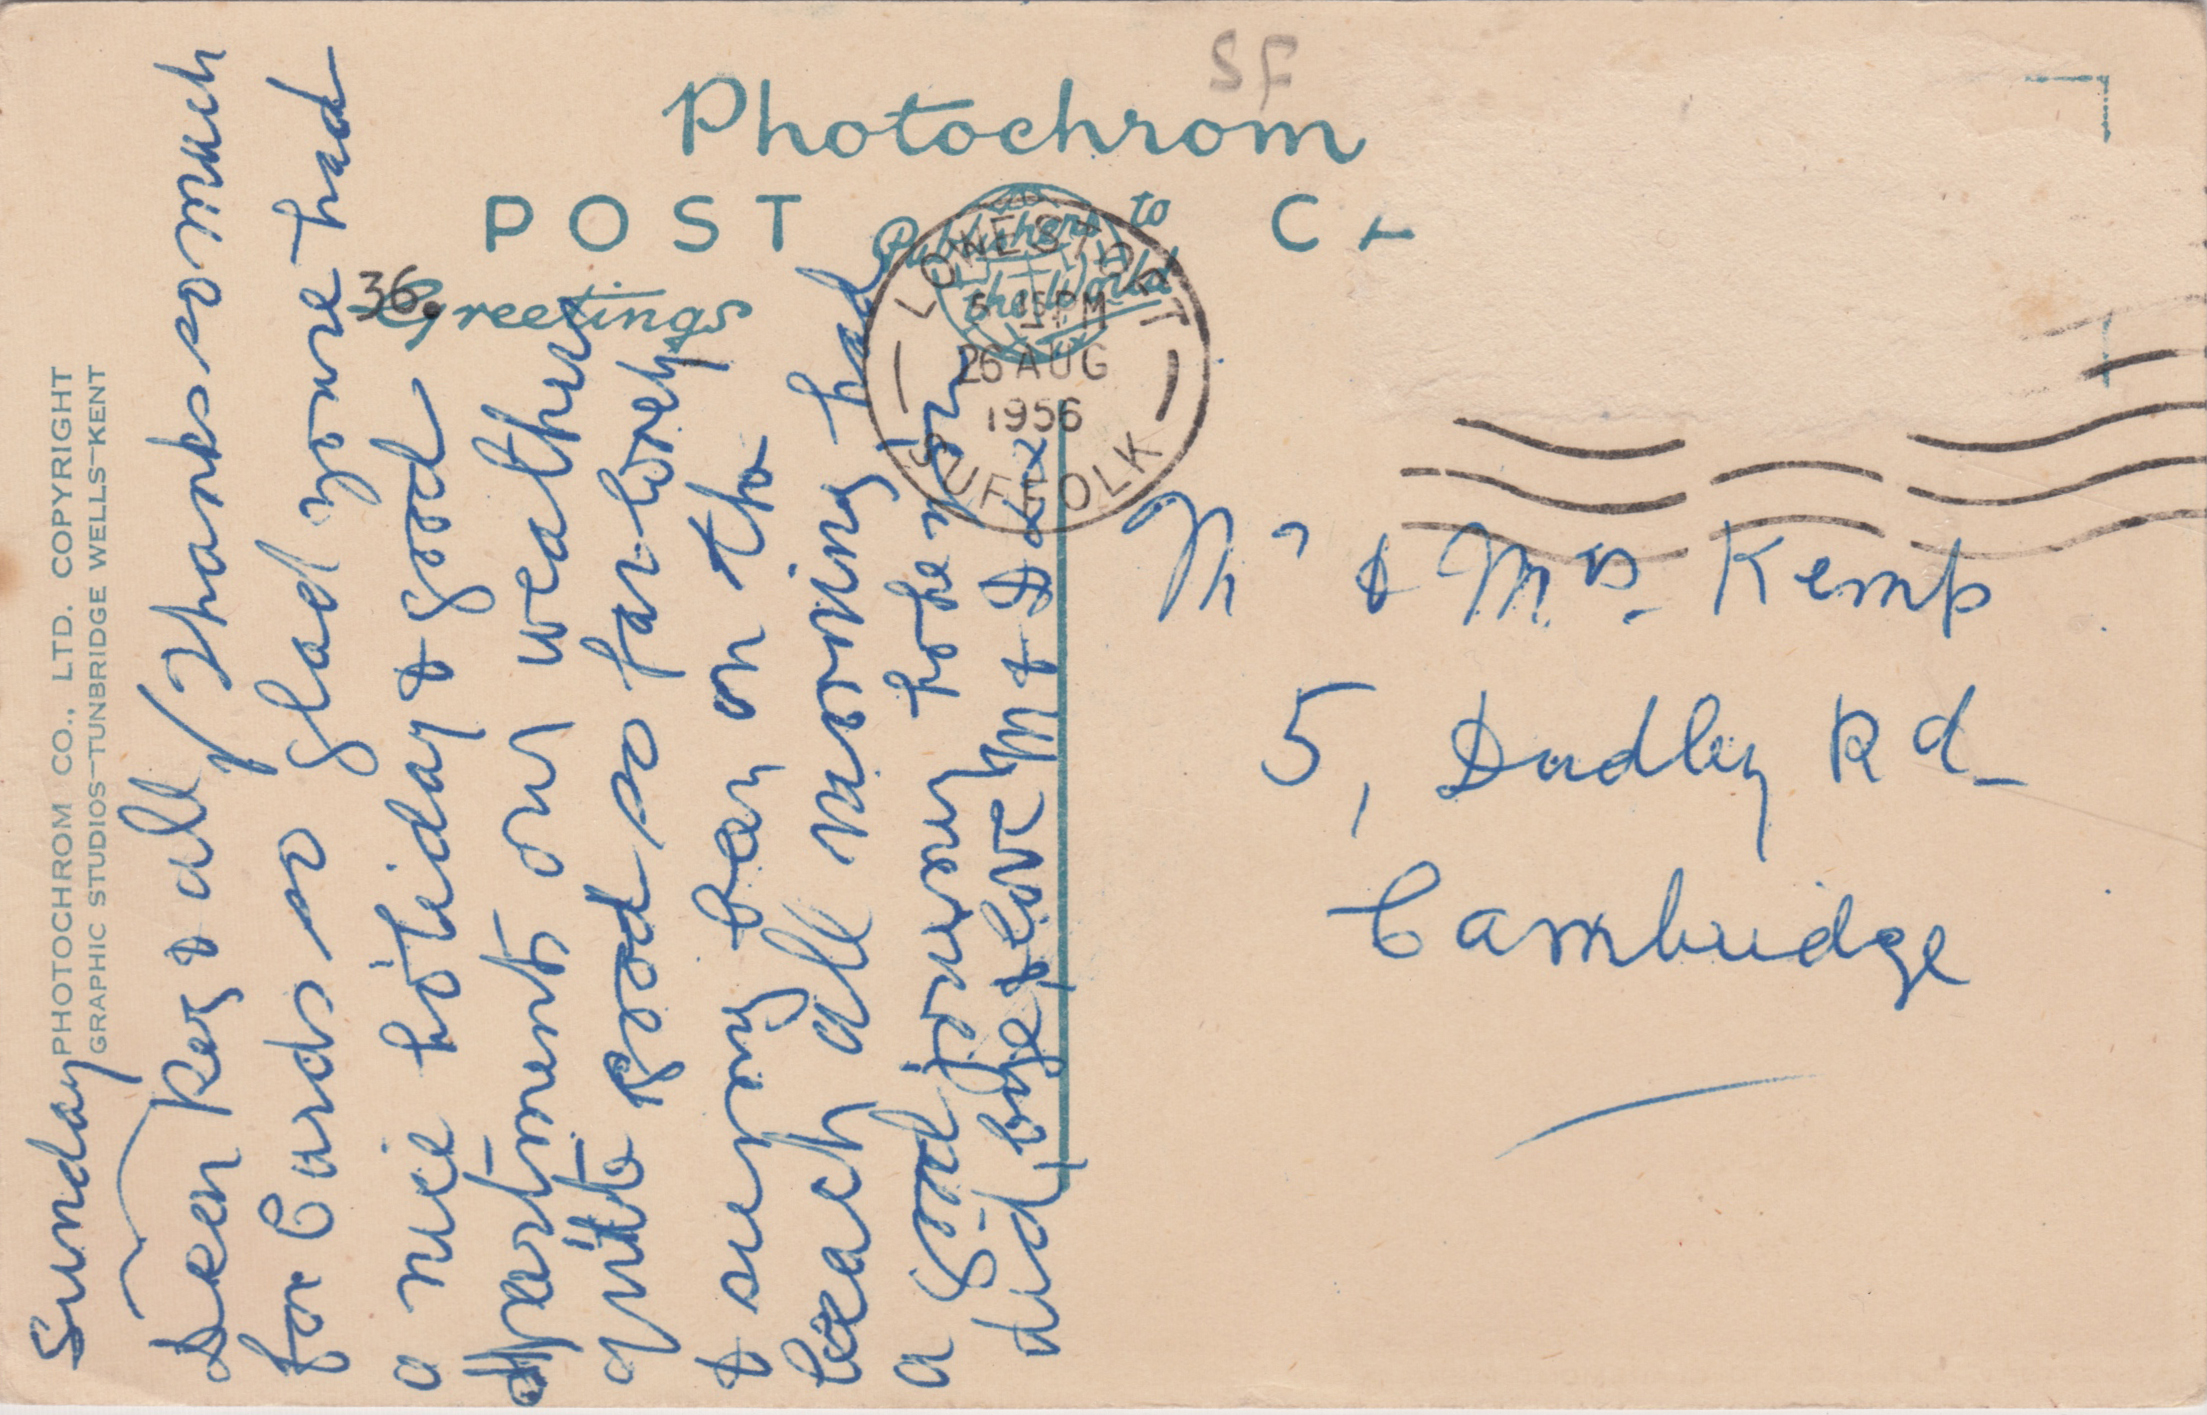 Photochrom
POST C
Publishers to
the World
Greetings
36.
SF
PHOTOCHROM CO., LTD. COPYRIGHT
GRAPHIC STUDIOS—TUNBRIDGE WELLS—KENT
LOWESTOFT
5 15 PM
26 AUG
1956
SUFFOLK
Sunday
Dear Reg & all / Thanks so much
for Cards so glad you've had
a nice holiday & good
apartments our weather
quite good so far lovely
& sunny been on the
beach all morning had
a good journey hope you
did, bye & love M & D xxx
Mr & Mrs. Kemp
5, Dudley Rd
Cambridge